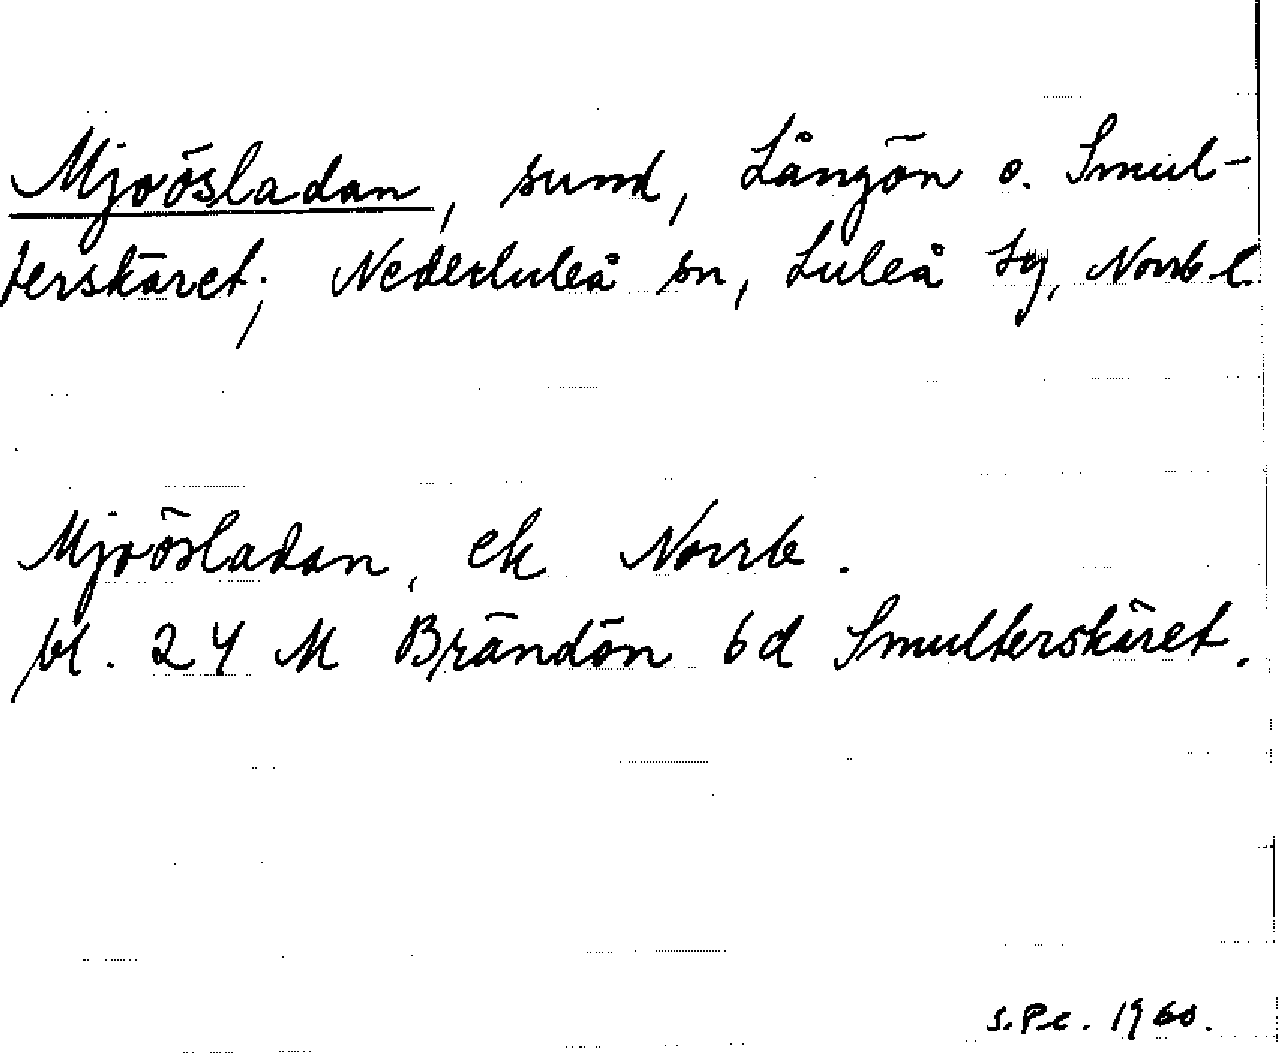 Mjoösladan, sund, Långön o. Smul-
terskäret; Nederluleå sn, Luleå tg, Norrb l.
Mjoösladan, ek Norrb.
bl. 24 M Brändön 6d Smulterskäret.
S.Pe. 1960.